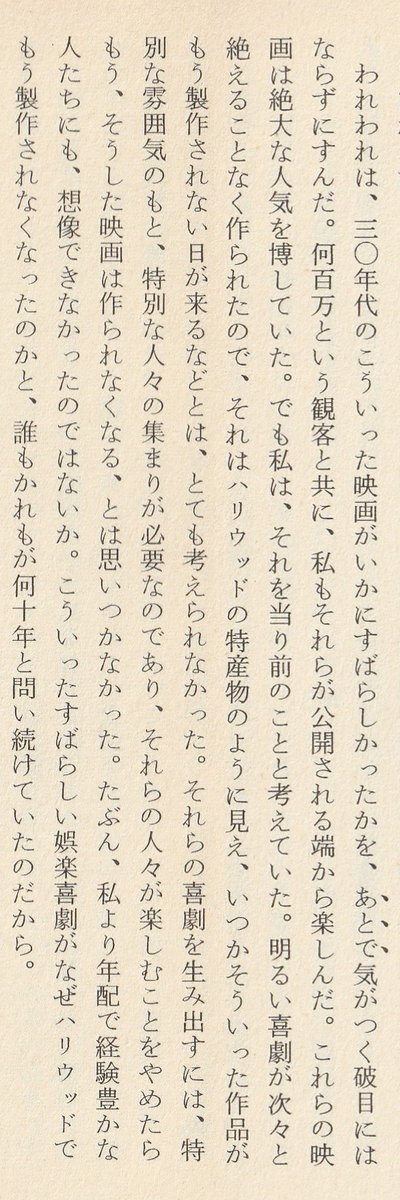 われわれは、三〇年代のこういった映画がいかにすばらしかったかを、あとで気がつく破目には
ならずにすんだ。何百万という観客と共に、私もそれらが公開される端から楽しんだ。これらの映
画は絶大な人気を博していた。でも私は、それを当り前のことと考えていた。明るい喜劇が次々と
絶えることなく作られたので、それはハリウッドの特産物のように見え、いつかそういった作品が
もう製作されない日が来るなどとは、とても考えられなかった。それらの喜劇を生み出すには、特
別な雰囲気のもと、特別な人々の集まりが必要なのであり、それらの人々が楽しむことをやめたら
もう、そうした映画は作られなくなる、とは思いつかなかった。たぶん、私より年配で経験豊かな
人たちにも、想像できなかったのではないか。こういったすばらしい娯楽喜劇がなぜハリウッドで
もう製作されなくなったのかと、誰もかれもが何十年と問い続けていたのだから。